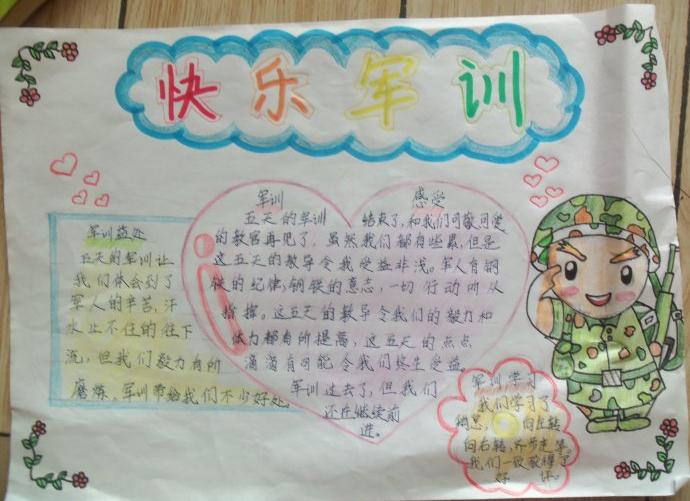 快乐军训
军训益处
五天的军训让
我们体会到了
军人的辛苦,汗
水止不住的往下
流,但我们毅力有所
磨炼。军训带给我们不少好处。
军训 感受
五天的军训 结束了,和我们可敬可爱
的教官再见了,虽然我们都有些累,但是
这五天的教导令我受益非浅。军人有钢
铁的纪律,钢铁的意志,一切行动听从
指挥。这五天的教导令我们的毅力和
体力都有所提高,这五天的点点
滴滴有可能令我们终生受益。
军训过去了,但我们
还在继续前
进。
军训学习
我们学习了
稍息, 向左转
向右转,齐步走等。
我们一致取得了
好